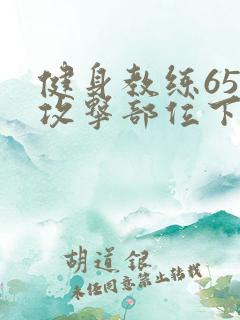 健身教练65
攻撃部位下
胡道银
未经同意禁止转载